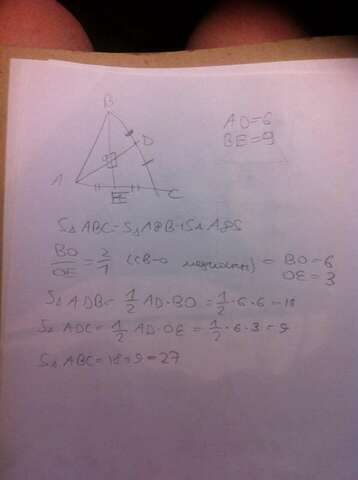 B
AD=6
BE=9
D
A
E
C
S△ABC=S△ADB+S△ADC
BO/OE=2/1 (св-о медианы) = BO=6
OE=3
S△ADB=1/2 AD·BO=1/2·6·6=18
S△ADC=1/2 AD·OE=1/2·6·3=9
S△ABC=18+9=27